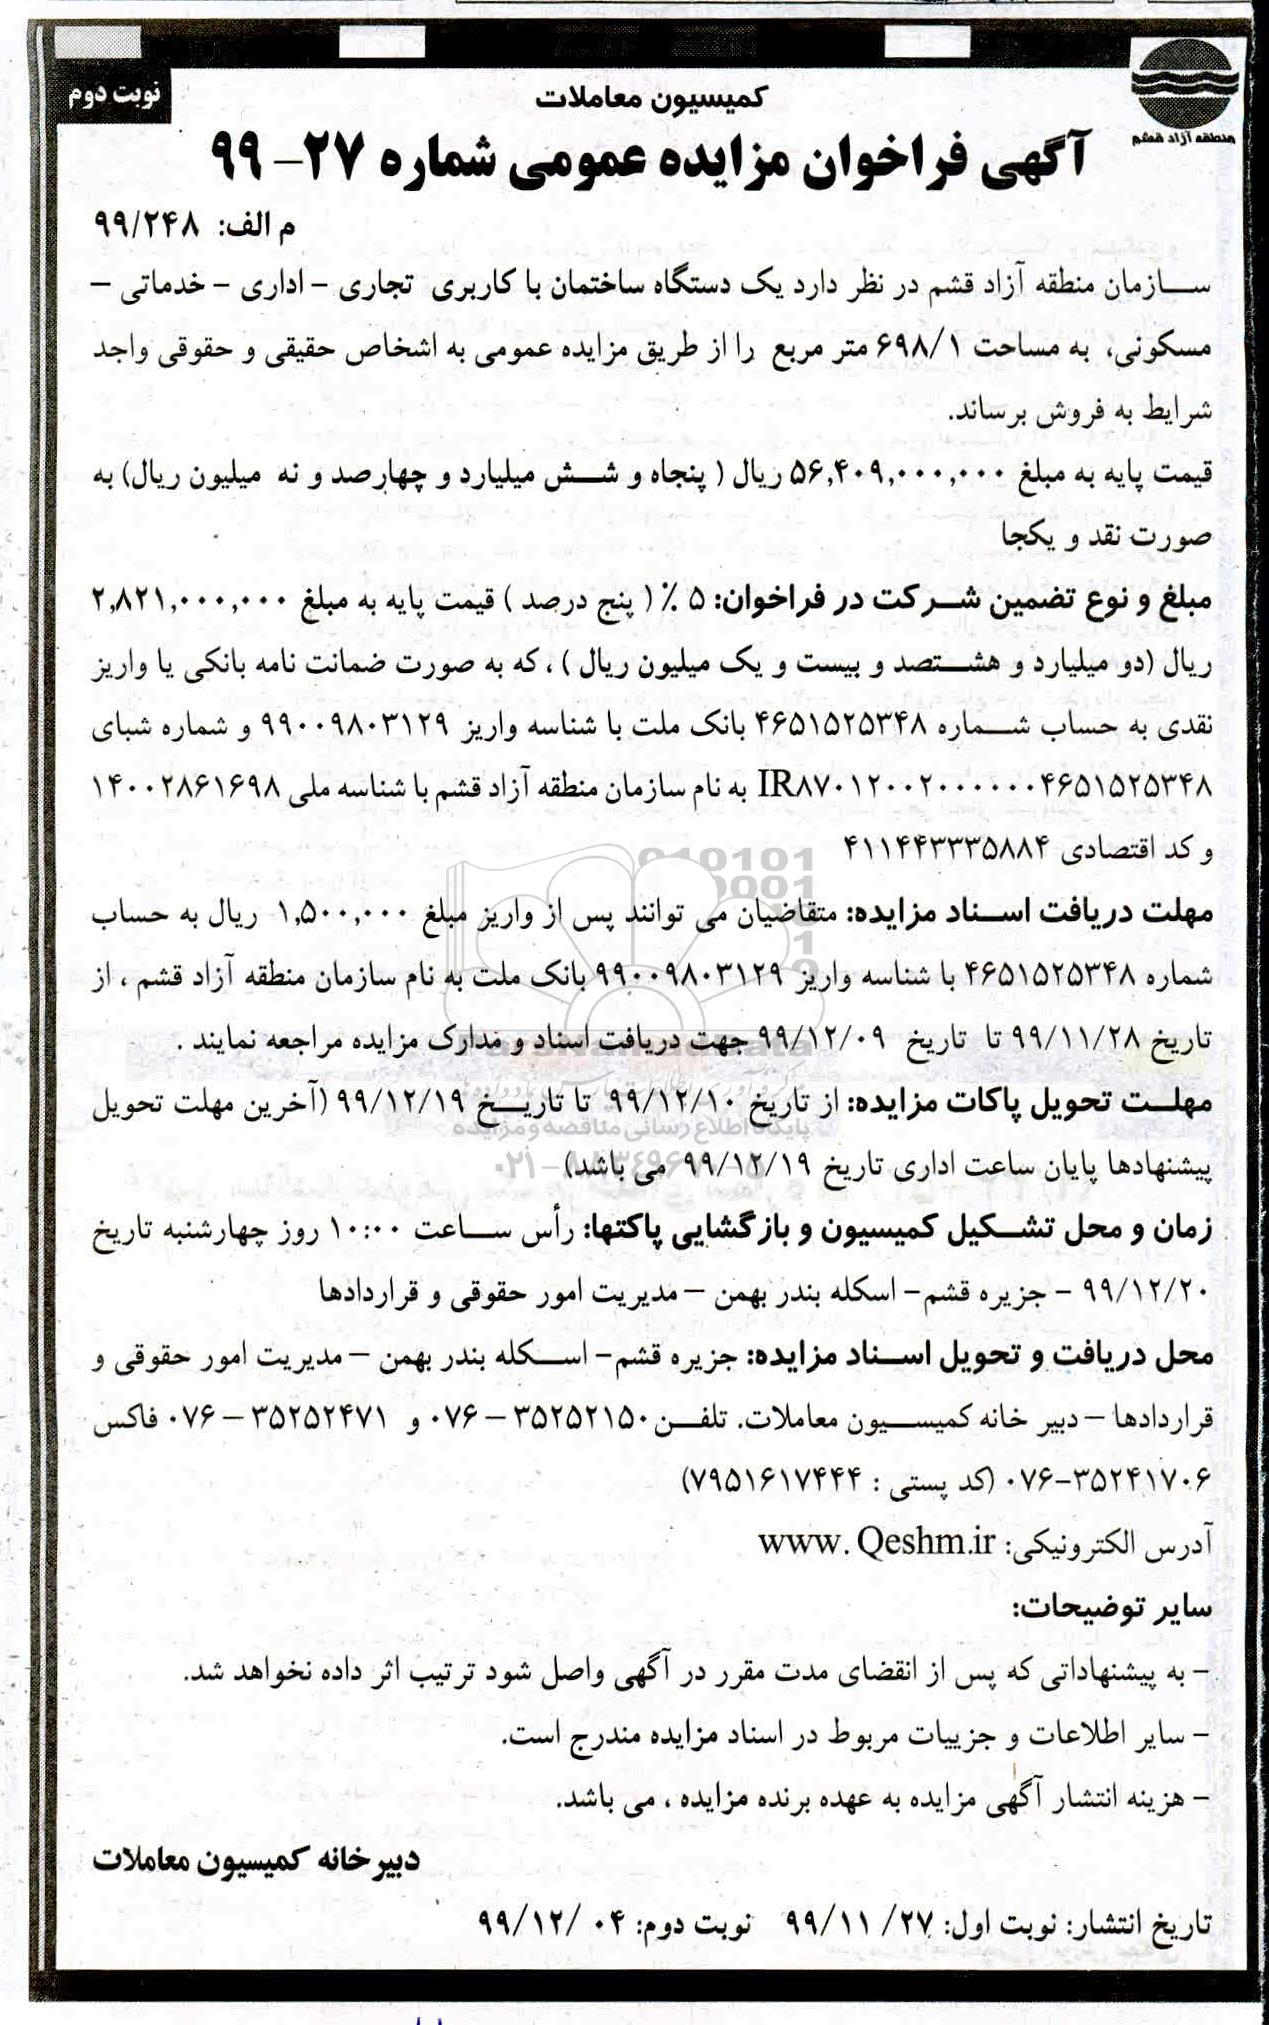 منطقه آزاد قشم
نوبت دوم
کمیسیون معاملات
آگهی فراخوان مزایده عمومی شماره ۲۷– ۹۹
م الف: ۹۹/۲۴۸
سازمان منطقه آزاد قشم در نظر دارد یک دستگاه ساختمان با کاربری تجاری – اداری – خدماتی –
مسکونی، به مساحت ۶۹۸/۱ متر مربع را از طریق مزایده عمومی به اشخاص حقیقی و حقوقی واجد
شرایط به فروش برساند.
قیمت پایه به مبلغ ۵۶,۴۰۹,۰۰۰,۰۰۰ ریال ( پنجاه و شش میلیارد و چهارصد و نه میلیون ریال) به
صورت نقد و یکجا
مبلغ و نوع تضمین شرکت در فراخوان: ۵ ٪ ( پنج درصد ) قیمت پایه به مبلغ ۲,۸۲۱,۰۰۰,۰۰۰
ریال (دو میلیارد و هشتصد و بیست و یک میلیون ریال ) ، که به صورت ضمانت نامه بانکی یا واریز
نقدی به حساب شماره ۴۶۵۱۵۲۵۳۴۸ بانک ملت با شناسه واریز ۹۹۰۰۹۸۰۳۱۲۹ و شماره شبای
IR۸۷۰۱۲۰۰۲۰۰۰۰۰۰۰۴۶۵۱۵۲۵۳۴۸ به نام سازمان منطقه آزاد قشم با شناسه ملی ۱۴۰۰۲۸۶۱۶۹۸
و کد اقتصادی ۴۱۱۴۴۳۳۳۵۸۸۴
مهلت دریافت اسناد مزایده: متقاضیان می توانند پس از واریز مبلغ ۱,۵۰۰,۰۰۰ ریال به حساب
شماره ۴۶۵۱۵۲۵۳۴۸ با شناسه واریز ۹۹۰۰۹۸۰۳۱۲۹ بانک ملت به نام سازمان منطقه آزاد قشم ، از
تاریخ ۹۹/۱۱/۲۸ تا تاریخ ۹۹/۱۲/۰۹ جهت دریافت اسناد و مدارک مزایده مراجعه نمایند .
مهلت تحویل پاکات مزایده: از تاریخ ۹۹/۱۲/۱۰ تا تاریخ ۹۹/۱۲/۱۹ (آخرین مهلت تحویل
پایگاه اطلاع رسانی مناقصه و مزایده
پیشنهادها پایان ساعت اداری تاریخ ۹۹/۱۲/۱۹ می باشد)
زمان و محل تشکیل کمیسیون و بازگشایی پاکتها: رأس ساعت ۱۰:۰۰ روز چهارشنبه تاریخ
۹۹/۱۲/۲۰ – جزیره قشم– اسکله بندر بهمن – مدیریت امور حقوقی و قراردادها
محل دریافت و تحویل اسناد مزایده: جزیره قشم– اسکله بندر بهمن – مدیریت امور حقوقی و
قراردادها – دبیر خانه کمیسیون معاملات. تلفن ۳۵۲۵۲۱۵۰ – ۰۷۶ و ۳۵۲۵۲۴۷۱ – ۰۷۶ فاکس
۰۷۶-۳۵۲۴۱۷۰۶ (کد پستی : ۷۹۵۱۶۱۷۴۴۴)
آدرس الکترونیکی: www. Qeshm.ir
سایر توضیحات:
– به پیشنهاداتی که پس از انقضای مدت مقرر در آگهی واصل شود ترتیب اثر داده نخواهد شد.
– سایر اطلاعات و جزییات مربوط در اسناد مزایده مندرج است.
– هزینه انتشار آگهی مزایده به عهده برنده مزایده ، می باشد.
دبیرخانه کمیسیون معاملات
تاریخ انتشار: نوبت اول: ۲۷/ ۹۹/۱۱ نوبت دوم: ۰۴ /۹۹/۱۲